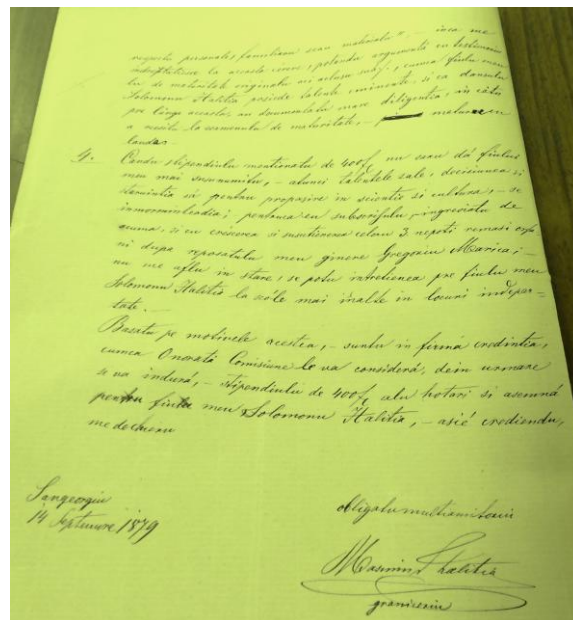 respectu personale, familiaru seau materialu", – inca me
indreptatiesce la acesta cerere, potendu argumentá cu testimoniu
lu de maturitate originalu aci aclusu sub ·/., cumca fiiulu meu
Solomonu Halitia posiede talente eminente, si ca dansulu
pre lânga acestea, au documentatu mare diligentia, in câtu
a reesitu la esamenulu de maturitate, – maturu cu
lauda. –
4. Candu stipendiulu mentionatu de 400 f. nu s'eau dá fiiului
meu mai susnumitu, – atunci talentele sale, deciciunea si
staruintia cá pentru propasire in scientie si cultura, – se
inmormentadia; pentruca eu subscrisulu, ingreuiatu de
acuma, si cu crescerea si sustinerea celoru 3 nepoti remasi orfa
ni dupa repausatulu meu ginere Gregoriu Marica; –
nu me aflu in stare, se potu intretienea pre fiiulu meu
Solomonu Halitia la scóle mai inalte in locuri indepar-
tate. –
Basatu pe motivele acestea, – suntu in firma credintia,
cumca Onorată Comisiune le va considerá, dein urmare
se va indurá, – stipendiulu de 400 f. alu hotarí si asemná
pentru fiiulu meu Solomonu Halitia, – asié crediendu,
me dechieru
Sangeorgiu
14 Septemvre 1879
obligatu multiamitoriu
Masimu Halitia
graniceriu